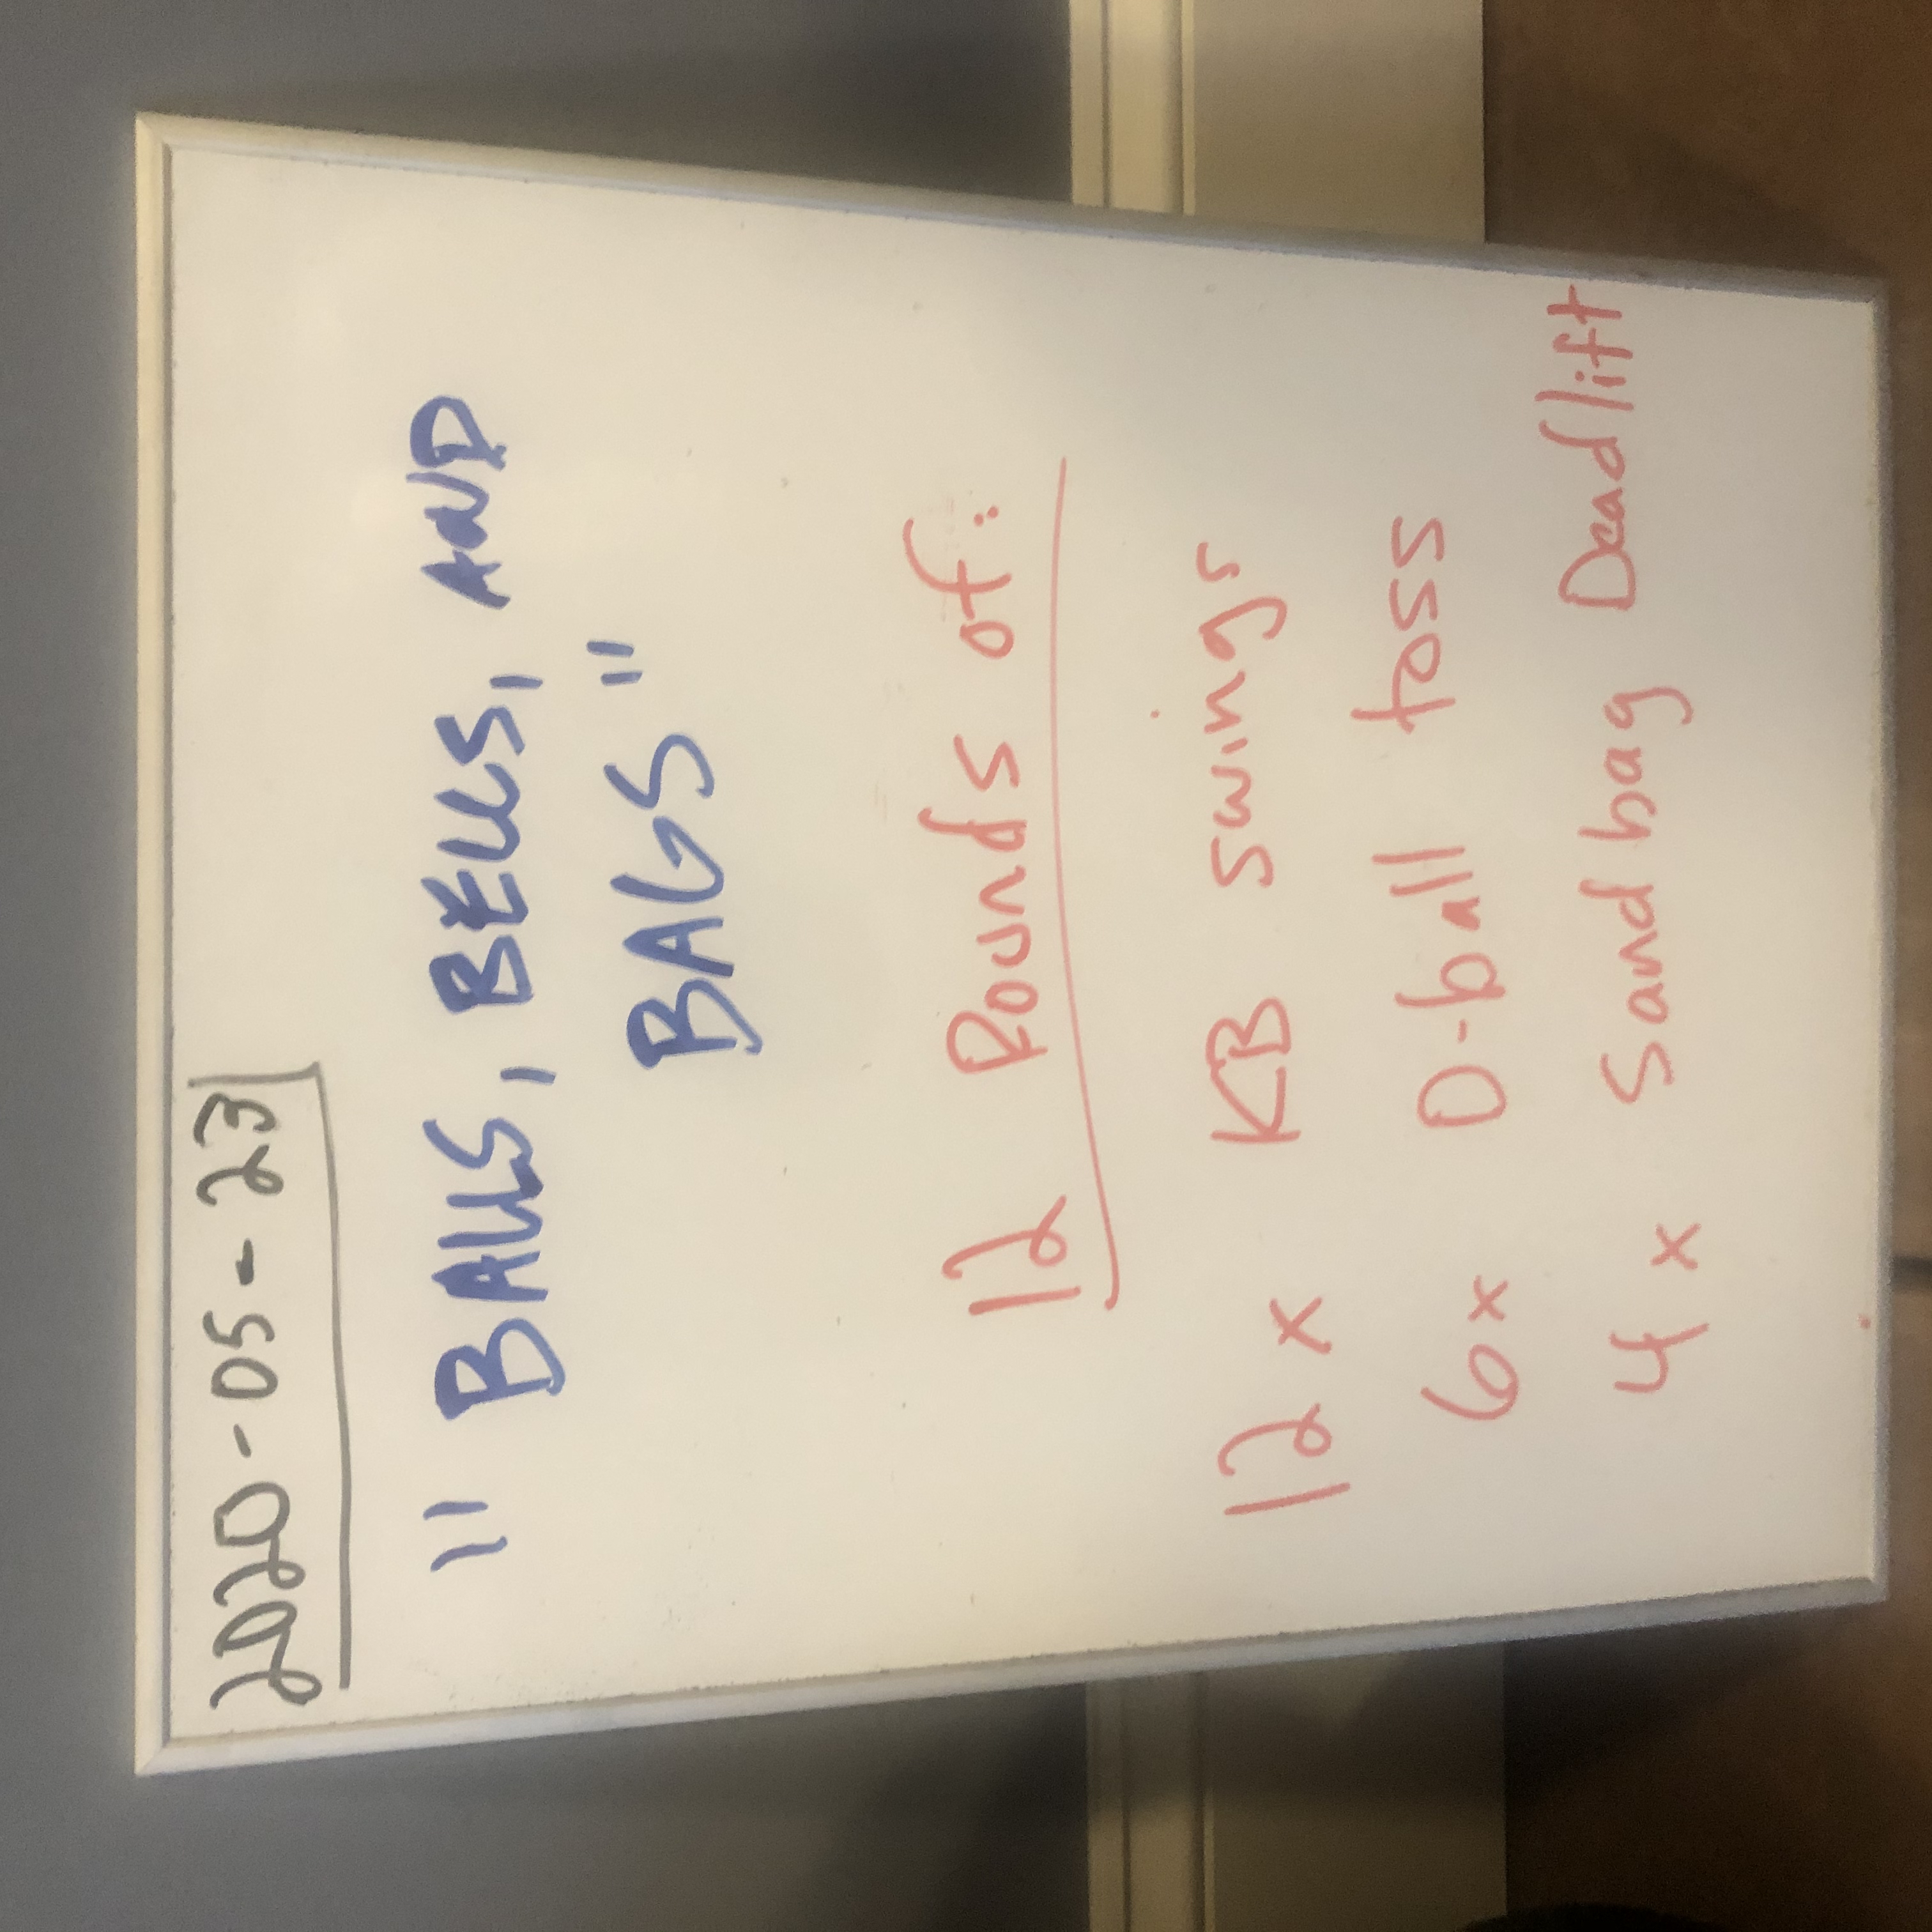 2020-05-23
"BALLS, BELLS, AND
BAGS"
12 Rounds of:
12 x KB swings
6x D-ball toss
4 x Sandbag Deadlift